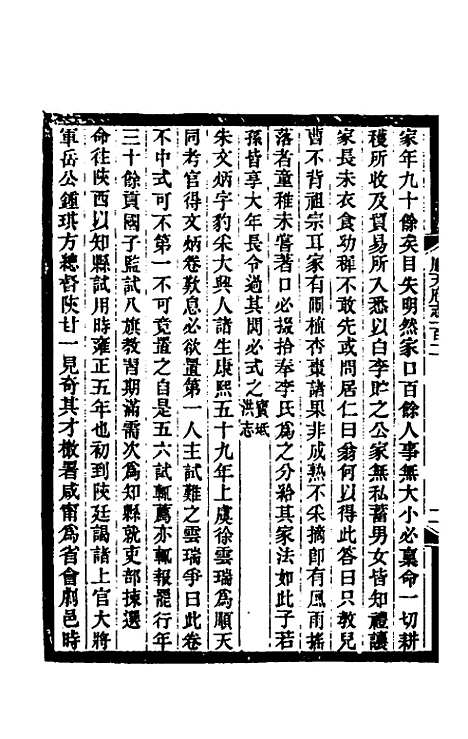 順天府志一百二
家年九十餘矣目失明然家口百餘人事無大小必稟命一切耕
穫所收及貿易所入悉以白李貯之公家無私蓄男女皆知禮讓
家長未衣食幼稺不敢先或問居仁曰翁何以得此答曰只教兒
曹不背祖宗耳家有園植杏棗諸果非成熟不采摘卽有風雨搖
落者童稚未嘗著口必掇拾奉李氏為之分給其家法如此子若
孫皆享大年長令過其閭必式之寶坻洪志
朱文炳字豹采大興人諸生康熙五十九年上虞徐雲瑞為順天
同考官得文炳卷歎息必欲置第一人主試難之雲瑞爭曰此卷
不中式可不第一不可竟置之自是五六試輒薦亦輒報罷行年
三十餘貢國子監試八旗教習期滿需次為知縣就吏部揀選
命往陝西以知縣試用時雍正五年也初到陝廷謁諸上官大將
軍岳公鍾琪方總督陝甘一見奇其才檄署咸甯為省會劇邑時